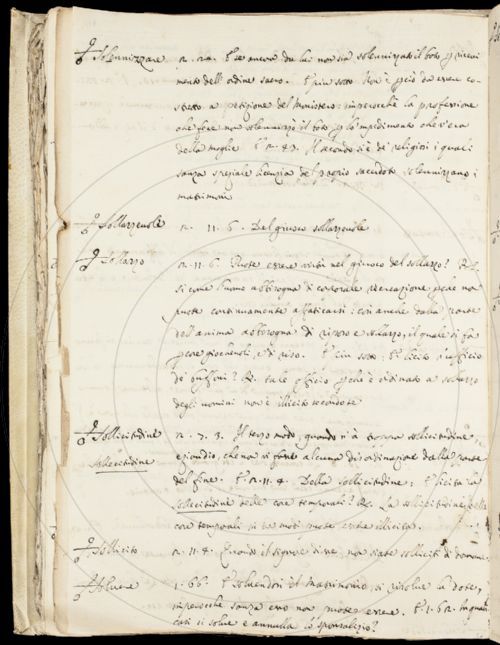 Solennizzare n. 22. E se ancora da lui non sia solennizzato il boto per ricevi
mento dell'ordine sacro. E più sotto Non è perciò da esere co-
stretto a petizione del Monistero: imperocchè la professione
che fece non solennizzò il boto per lo impedimento che v'era
della moglie E n. 43. Il secondo si è de' religiosi i quai:
sanza speziale licenzia del proprio sacerdote solennizzano i
matrimonj
Sollazzevole n. 11. 6. Del giuoco sollazzevole
Sollazzo n. 11. 6. Puote essere vizio nel giuoco del sollazzo?
si come l'uomo abbisogna di corporale recreazione perchè non
puote continuamente affaticarsi: così anche dalla parte
dell'anima abbisogna di riposo e sollazzo, il quale si fa
per cose giochevoli, e di riso. E più sotto: E' licito l'uficio
de' buffoni? tale officio perchè è ordinato a sollazzo
degli uomini non è illicito secondo se
Sollicitudine n. 7. 3. Il terzo modo, quando v'à troppa sollicitudine
Sollecitudine eziandio, che non vi fosse alcuna disordinazione dalla parte
del fine. E n. 11. 4. Della sollicitudine: E' licita la
sollecitudine delle cose temporali? La sollicitudine delle
cose temporali in tre modi puote essere illicita.
Sollicito n. 11. 4. Quando il signore dice, non siate solliciti di domane
Solvere 1. 66. E solvendosi il matrimonio, si risolve la dote,
imperocchè sanza esso non puote essere. E 1. 62. In quanti
casi si solve e annulla lo sponsalizio?